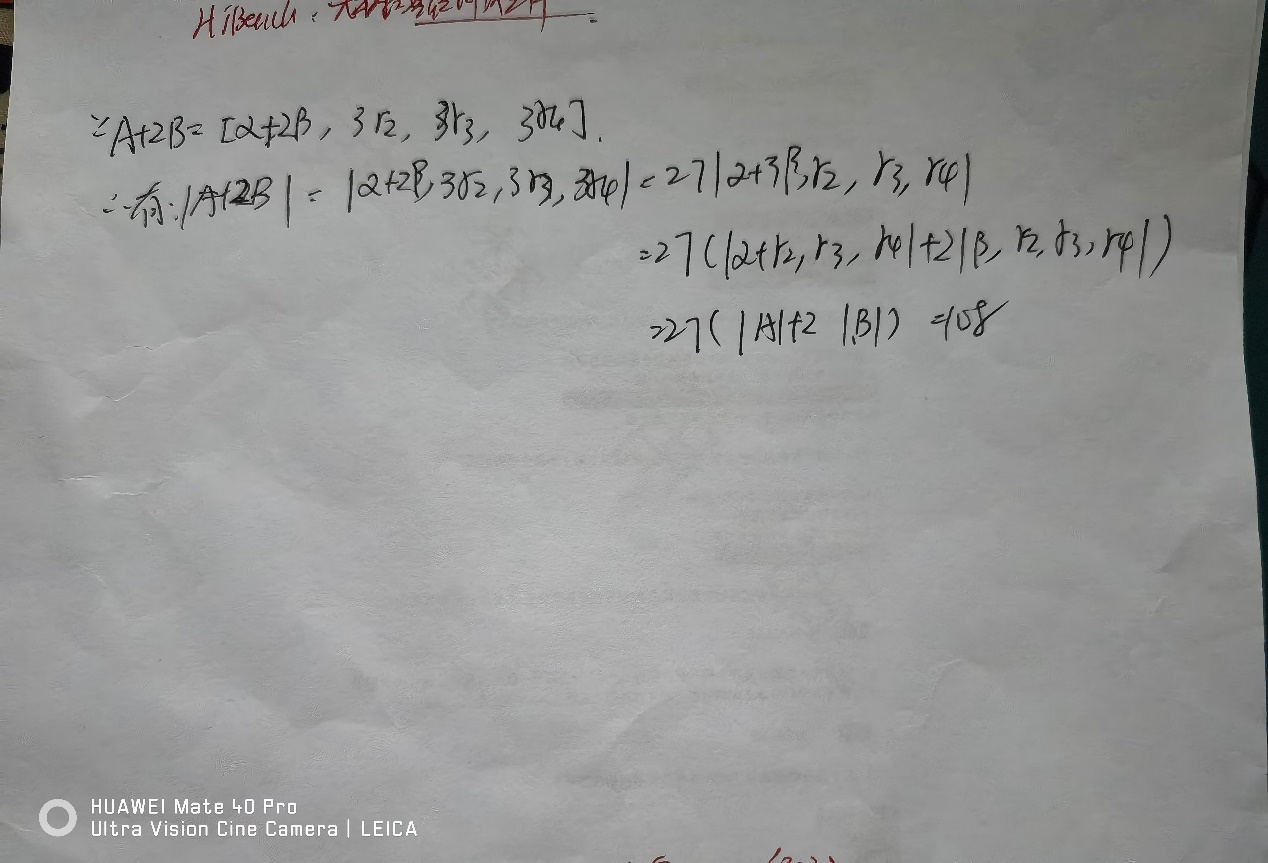 HiBench:
∵A+2B=[α+2β, 3r2, 3r3, 3r4].
∴有:|A+2B|=|α+2β,3r2,3r3,3r4|=27|α+3β,r2, r3, r4|
=27(|α+r2,r3, r4|+2|β, r2,r3,r4|)
=27(|A|+2|B|) =108
HUAWEI Mate 40 Pro
Ultra Vision Cine Camera | LEICA